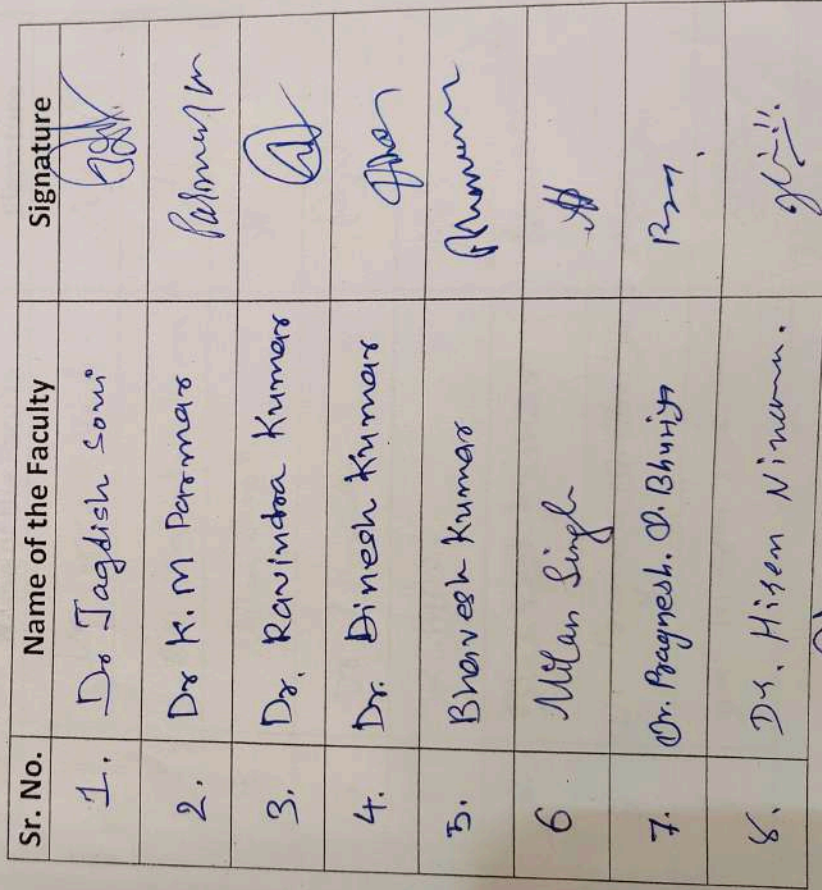 Sr. No. Name of the Faculty Signature
1. Dr Jagdish Soni
2. Dr K. M Parmar
3. Dr. Ravindra Kumar
4. Dr. Dinesh Kumar
5. Bhavesh Kumar
6 Milan Singh
7. Dr. Pragnesh. D. Bhuriya
8. Dr. Hiren Ninama.